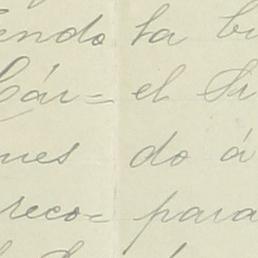 endo ha
Cár= el
nes do á
reco= para